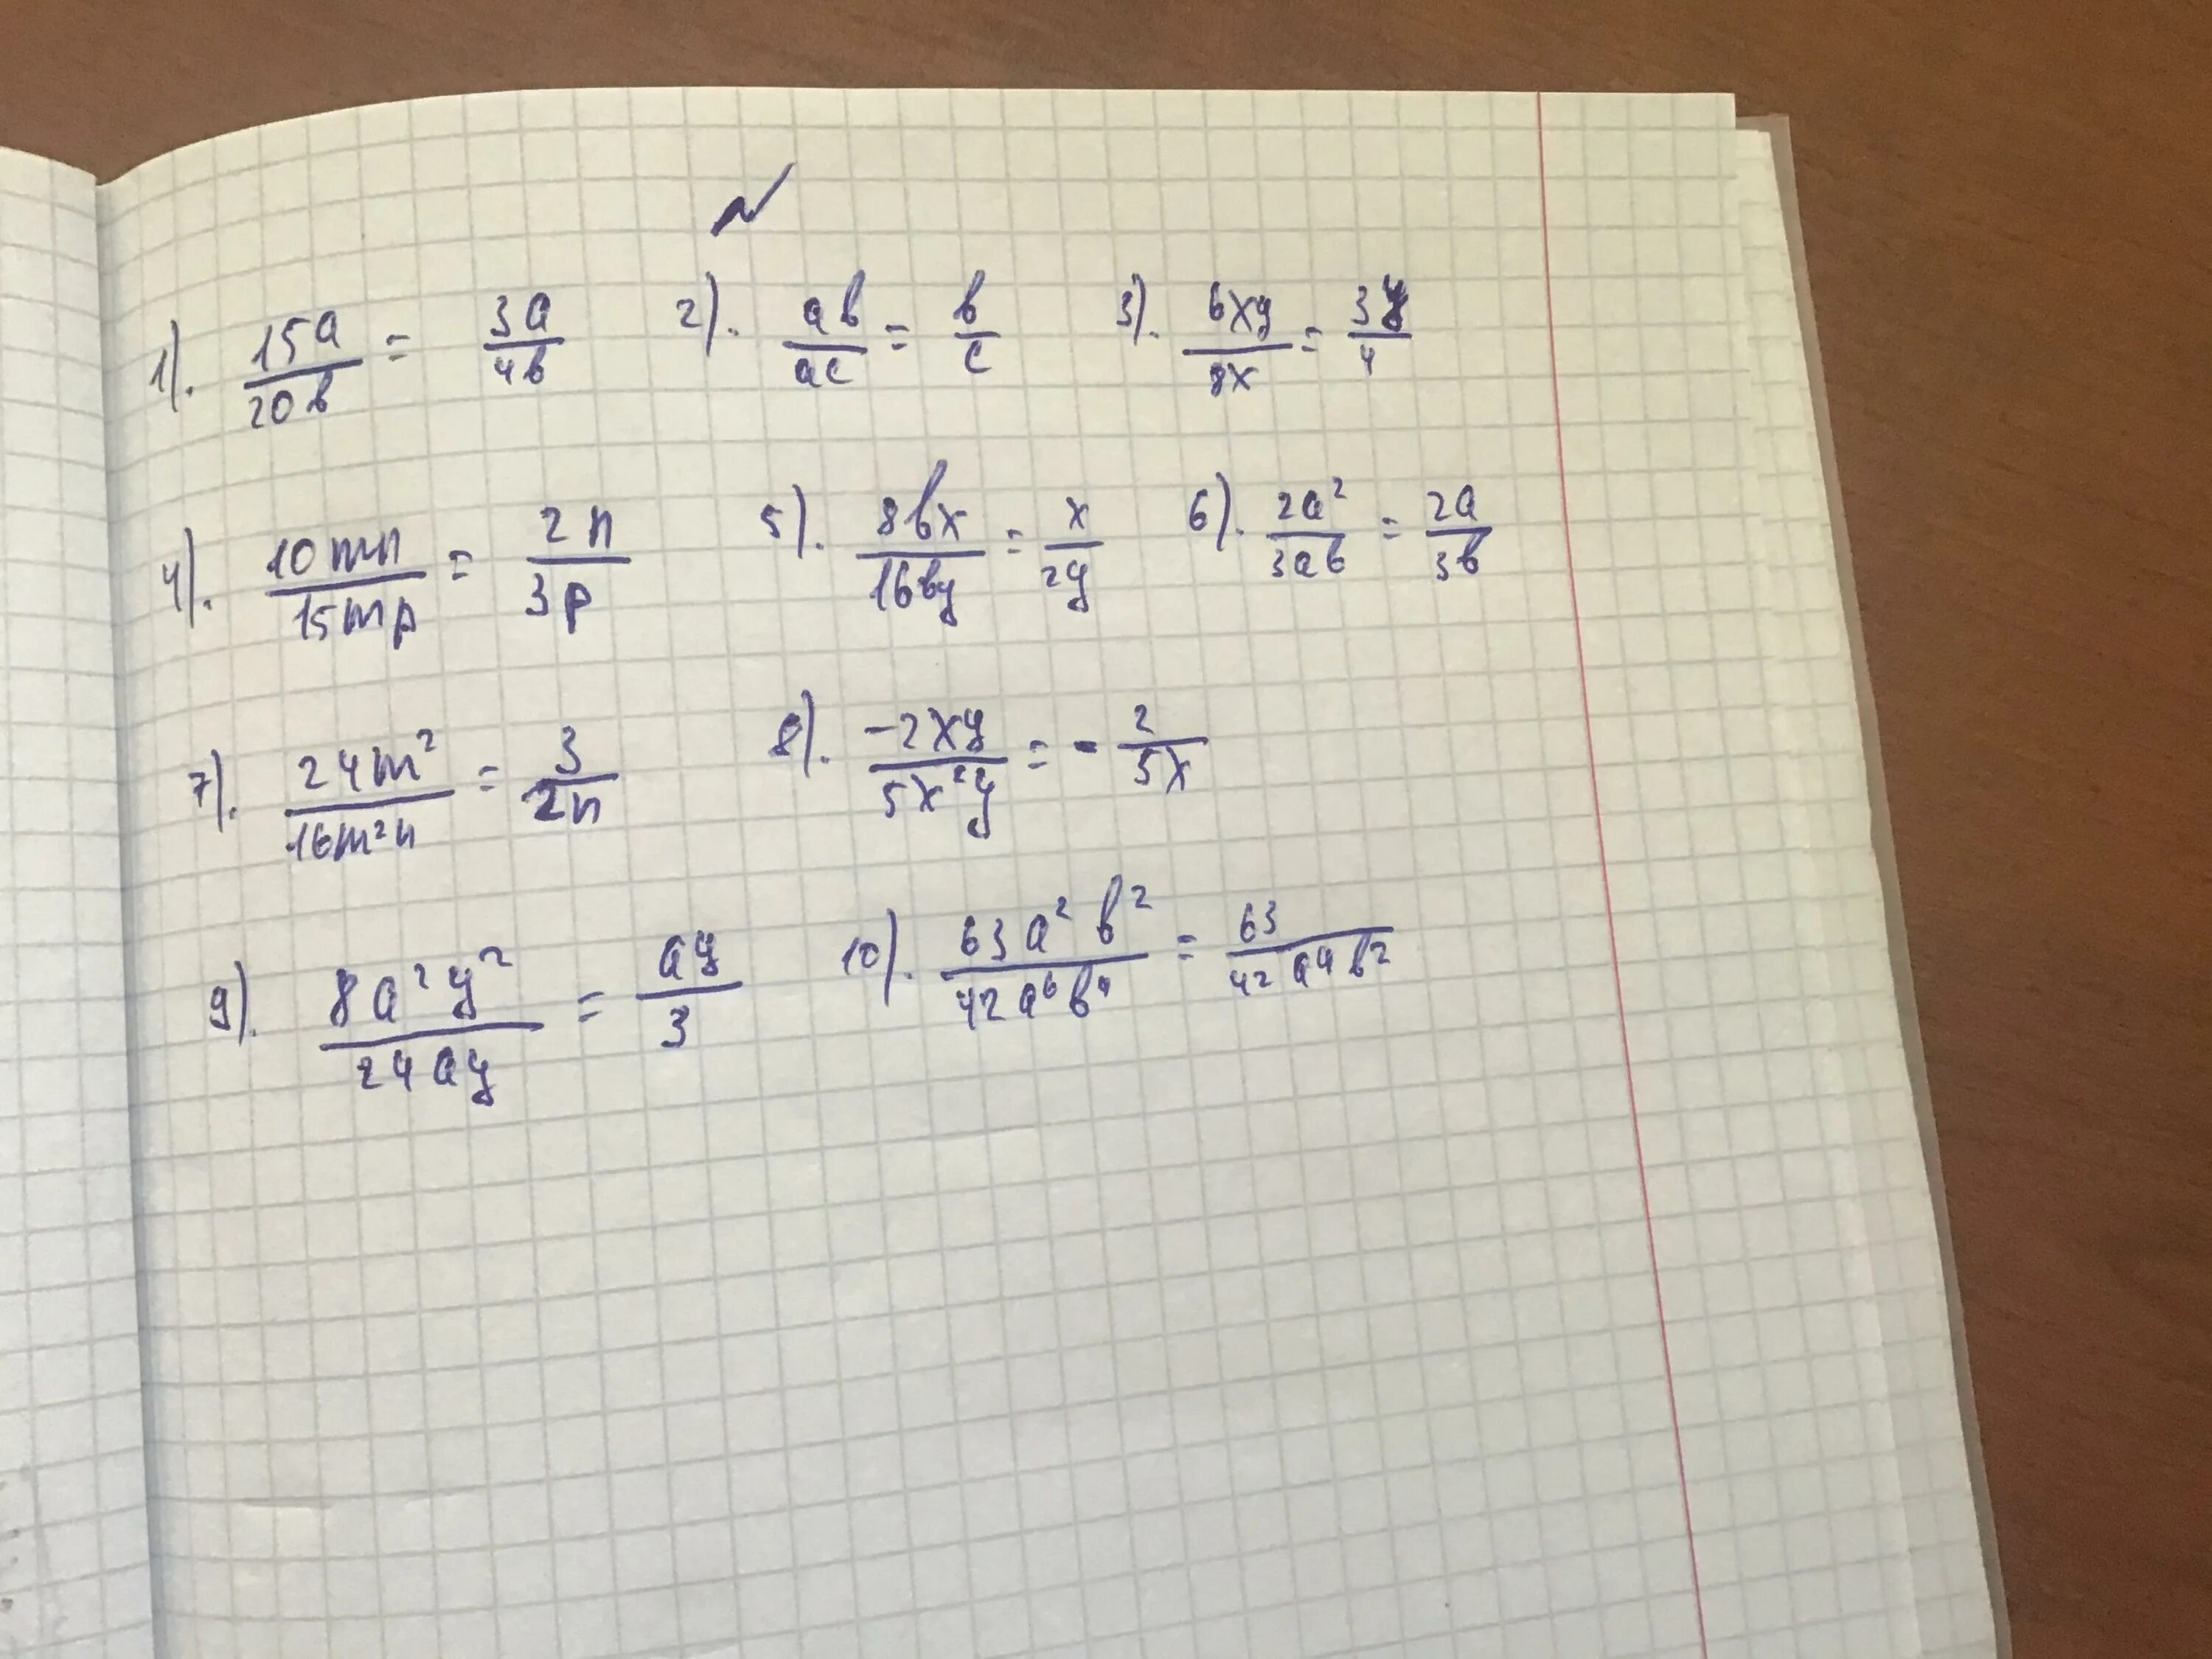 N
1). 15a/20b = 3a/4b 2). ab/ac = b/c 3). 6xy/8x = 3y/4
4). 10mn/15mp = 2n/3p 5). 8bx/16by = x/2y 6). 2a²/3ab = 2a/3b
7). 24m²/16m²n = 3/2n 8). -2xy/5x²y = -2/5x
9). 8a²y²/24ay = ay/3 10). 63a²b²/42a⁶b⁴ = 63/42a⁴b²